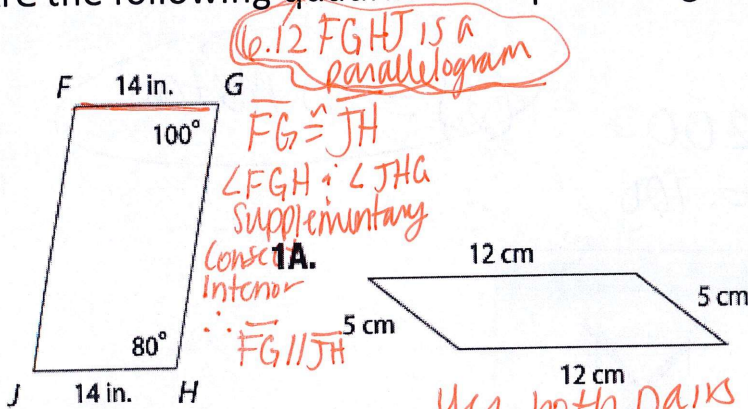 are the following
6.12 FGHJ is a
parallelogram
F 14 in. G
100°
FG ≅ JH
∠FGH & ∠JHG
Supplementary
Consec
Interior
∴ FG // JH
80°
J 14 in. H
1A.
12 cm
5 cm
5 cm
12 cm
Yes both pairs